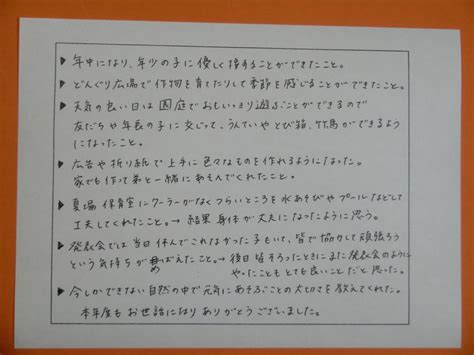 ▶ 年中になり、年少の子に優しく接することができたこと。
▶ どんぐり広場で作物を育てたりして季節を感じることができたこと。
▶ 天気の良い日は園庭でおもいっきり遊ぶことができるので
友だちや年長の子に交じって、うんていやとび箱、竹馬ができるよう
になったこと。
▶ 広告や折り紙で上手に色々なものを作れるようになった。
家でも作って弟と一緒にあそんでくれたこと。
▶ 夏場 保育室にクーラーがなくつらいところを水あそびやプールなどして
工夫してくれたこと。→ 結果 身体が丈夫になったように思う。
▶ 発表会では当日休んでこれなかった子もいて、皆で協力して頑張ろう
という気持ちが芽ばえたこと。→ 後日皆そろったときにまた発表会のように
やったこともとても良いことだと思った。
▶ 今しかできない自然の中で元気にあそることの大切さを教えてくれた。
本年度もお世話になりありがとうございました。